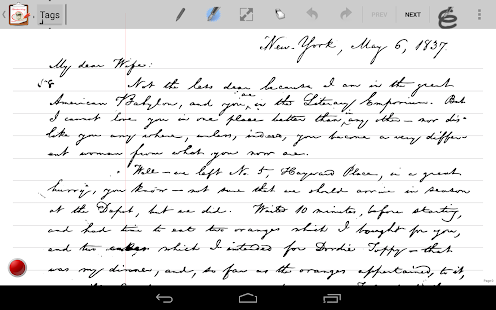 Tags
PREV
NEXT
New-York, May 6, 1837
My dear Wife:
58
Not the less dear because I am in the great
American Babylon, and you are in the Literary Emporium. But
I cannot love you in one place better than any other — nor dis-
like you any where, unless, indeed, you become a very differ-
ent woman from what you now are.
Well — we left No. 5, Hayward Place, in a great
hurry, you know — not sure that we should arrive in season
at the Depot, but we did. Waited 10 minutes, before starting,
and had time to eat two oranges which I bought for you,
and two cakes which I intended for Dordie Toppy — that
was my dinner, and, so far as the oranges appertained to it,